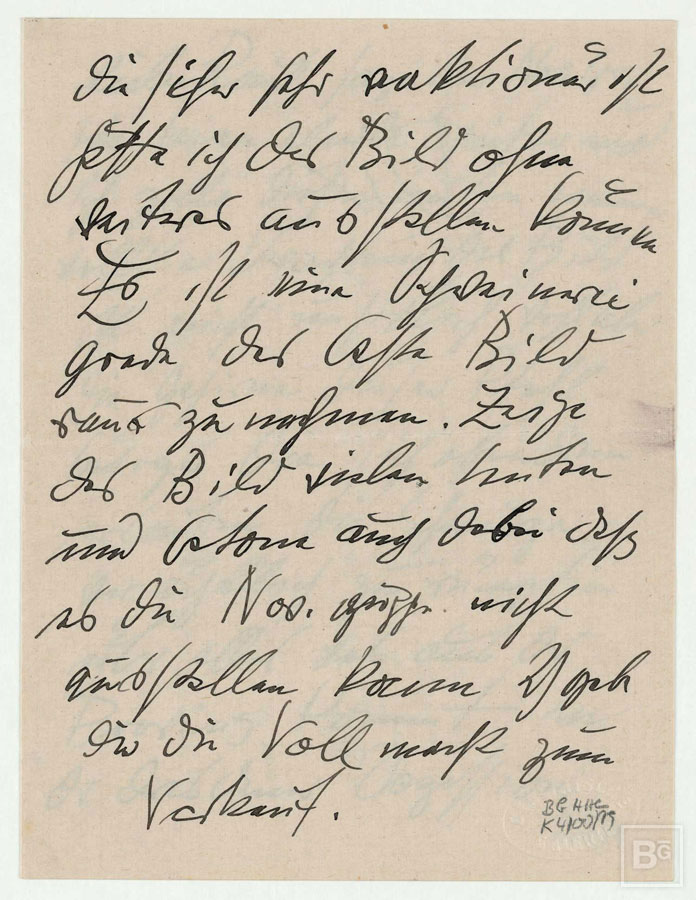 die sicher sehr reaktionär ist
hätte ich das Bild ohne
weiteres ausstellen können
Es ist eine Schweinerei
grade das beste Bild
raus zu nehmen. Zeige
das Bild vielen Leuten
und betone auch dabei daß
es die Nov. gruppe nicht
ausstellen kann Ich geb
dir die Vollmacht zum
Verkauf.
BG HHC
K 4/00/79
BG